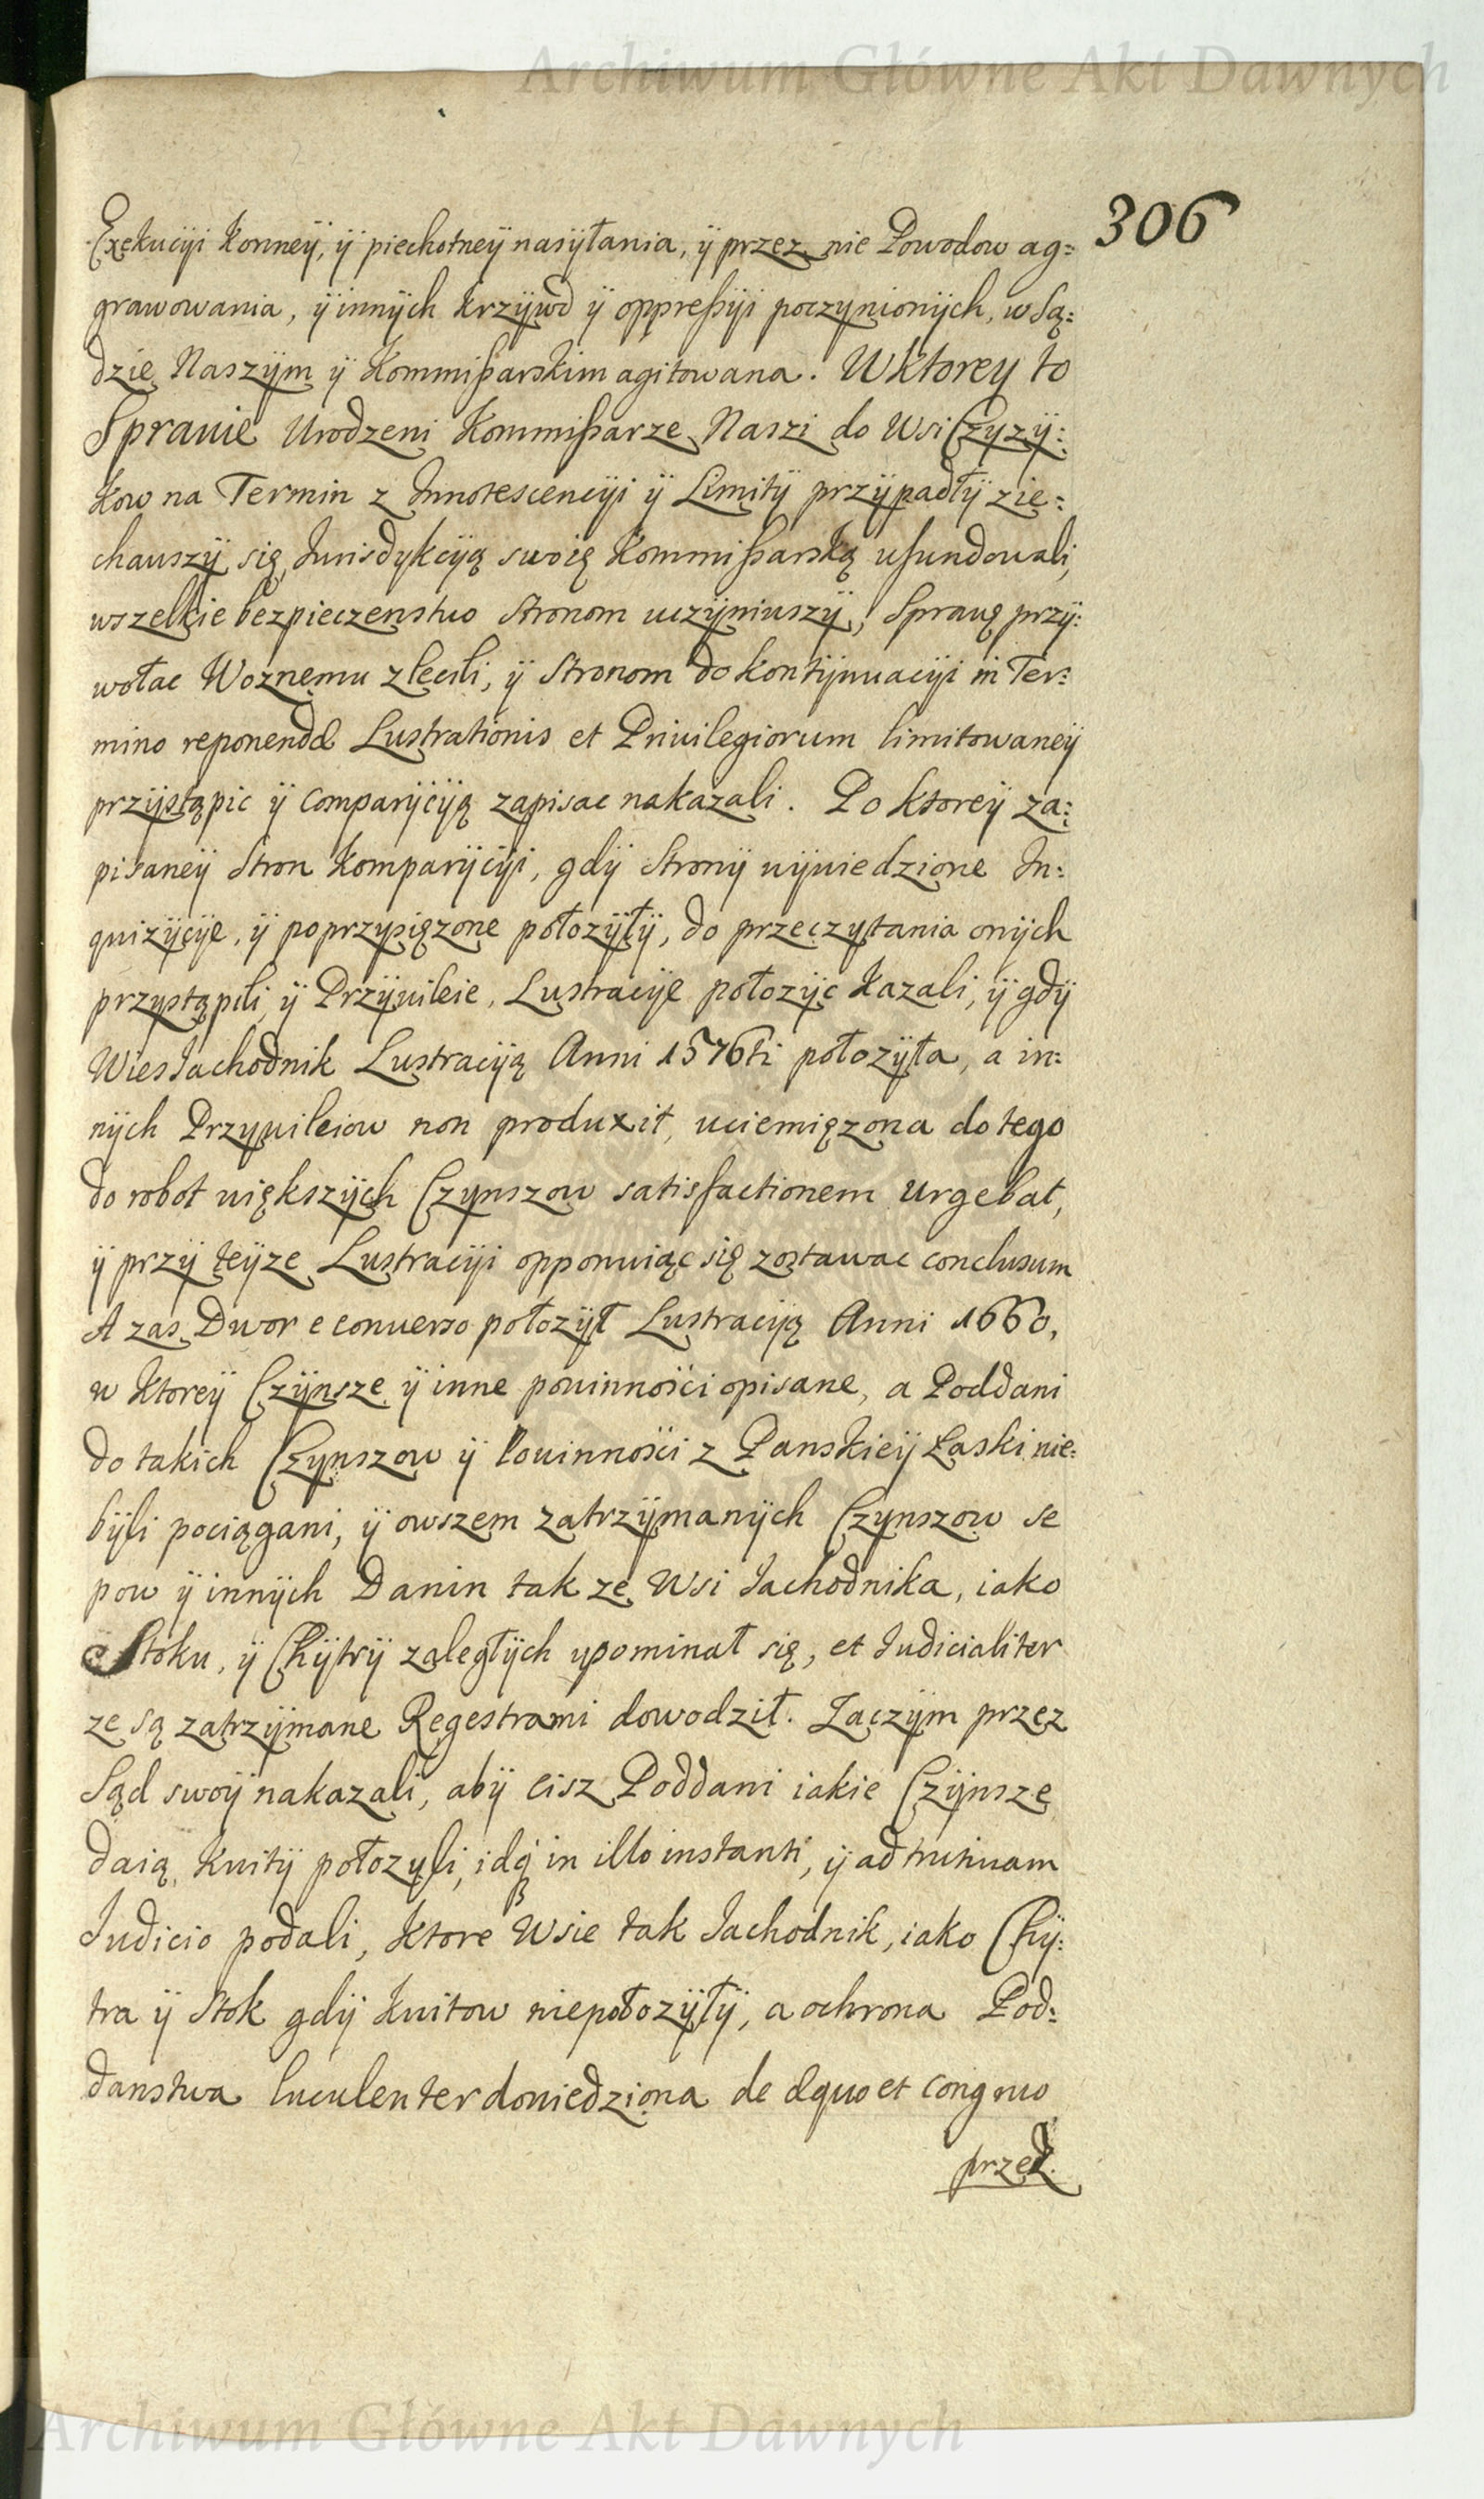 Archiwum Główne Akt Dawnych
306
Exekucÿi konneÿ, ÿ piechotneÿ nasÿłania, ÿ przez nie Powodow ag=
grawowania, ÿ innÿch krzÿwd ÿ oppreßÿi poczynionÿch, w Są=
dzie Naszÿm ÿ Kommißarskim agitowana. W ktorey to
Sprawie Urodzeni Kommißarze Naszi do Wsi Czyzÿ=
kow na Termin z Innotescencÿi ÿ Limitÿ przÿpadłÿ zie=
chawszÿ się, Jurisdykcÿą swoię Kommißarską ufundowali,
wszelkie bezpieczenstwo Stronom uczÿniwszÿ, Sprawę przÿ=
wołac Woznemu zlecili, ÿ Stronom do kontÿnuacÿi in Ter=
mino reponendæ Lustrationis et Privilegiorum limitowaneÿ
przÿstąpic ÿ Comparÿcÿą zapisac nakazali. Po ktoreÿ za=
pisaneÿ Stron Komparÿcÿi, gdÿ Stronÿ wÿwiedzione In=
quizÿcÿe, ÿ poprzysięzone połozÿłÿ, do przeczytania onÿch
przystąpili, ÿ Przÿwileie, Lustracÿe połozÿc kazali, ÿ gdÿ
Wies Jachodnik Lustracÿą Anni 1576ti połozÿła, a in=
nÿch Przywileiow non produxit, uciemięzona do tego
do robot większÿch Czynszow satisfactionem urgebat,
ÿ przÿ teÿze Lustracÿi opponuiąc się zostawac conclusum
A zas Dwor e converso połozÿł Lustracÿą Anni 1660,
w ktoreÿ Czÿnsze ÿ inne powinności opisane, a Poddani
do takich Czynszow ÿ Powinności z Panskieÿ Łaski nie=
bÿli pociągani, ÿ owszem zatrzÿmanÿch Czynszow se
pow ÿ innÿch Danin tak ze Wsi Jachodnika, iako
Stoku, ÿ Chÿtrÿ zaległÿch upominał się, et Judicialiter
ze są zatrzÿmane Regestrami dowodził. Zaczÿm przez
Sąd swoÿ nakazali, abÿ cisz Poddani iakie Czÿnsze
daią, kwitÿ połozyli, idq in illo instanti, ÿ ad trutinam
Judicio podali, ktore Wsie tak Jachodnik, iako Chÿ=
tra ÿ Stok gdÿ kwitow niepołozÿłÿ, a ochrona Pod=
danstwa luculenter dowiedziona de æquo et congruo
przed.
Archiwum Główne Akt Dawnych